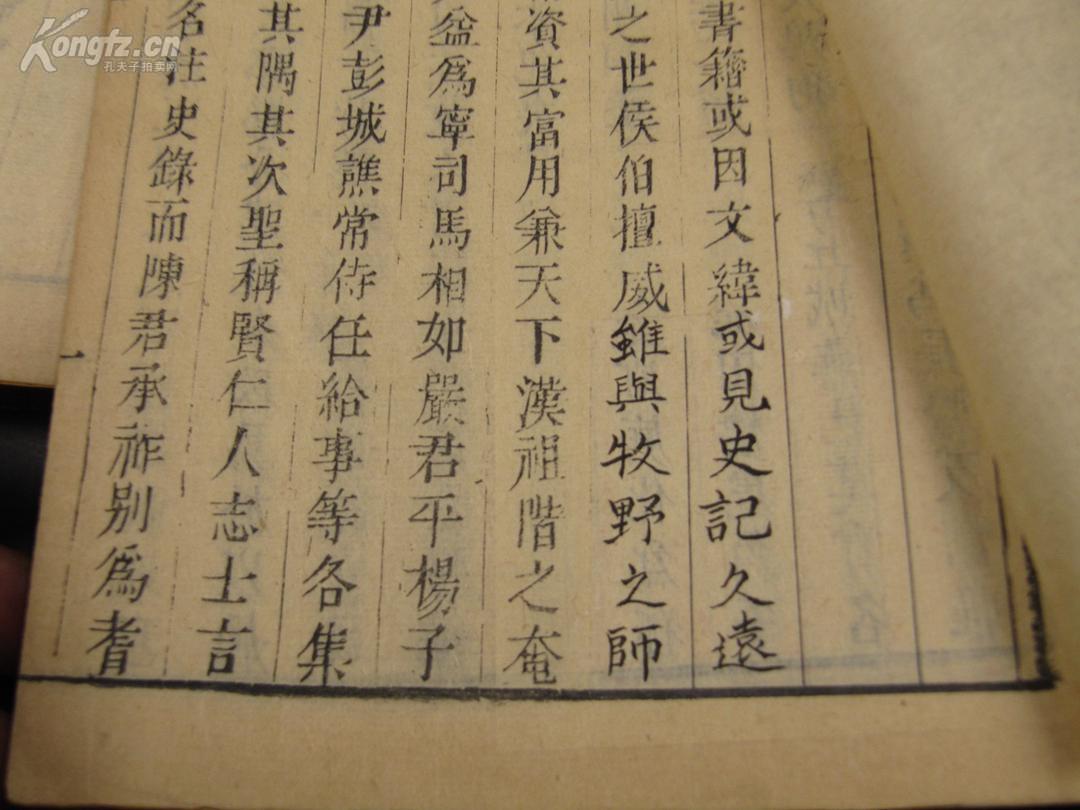 書籍或因文緯或見史記久遠
之世侯伯擅威雖與牧野之師
資其富用兼天下漢祖階之奄
盆為寧司馬相如嚴君平楊子
尹彭城譙常侍任給事等各集
其隅其次聖稱賢仁人志士言
名注史錄而陳君承祚别為耆
一
Kongfz.cn
孔夫子拍卖网